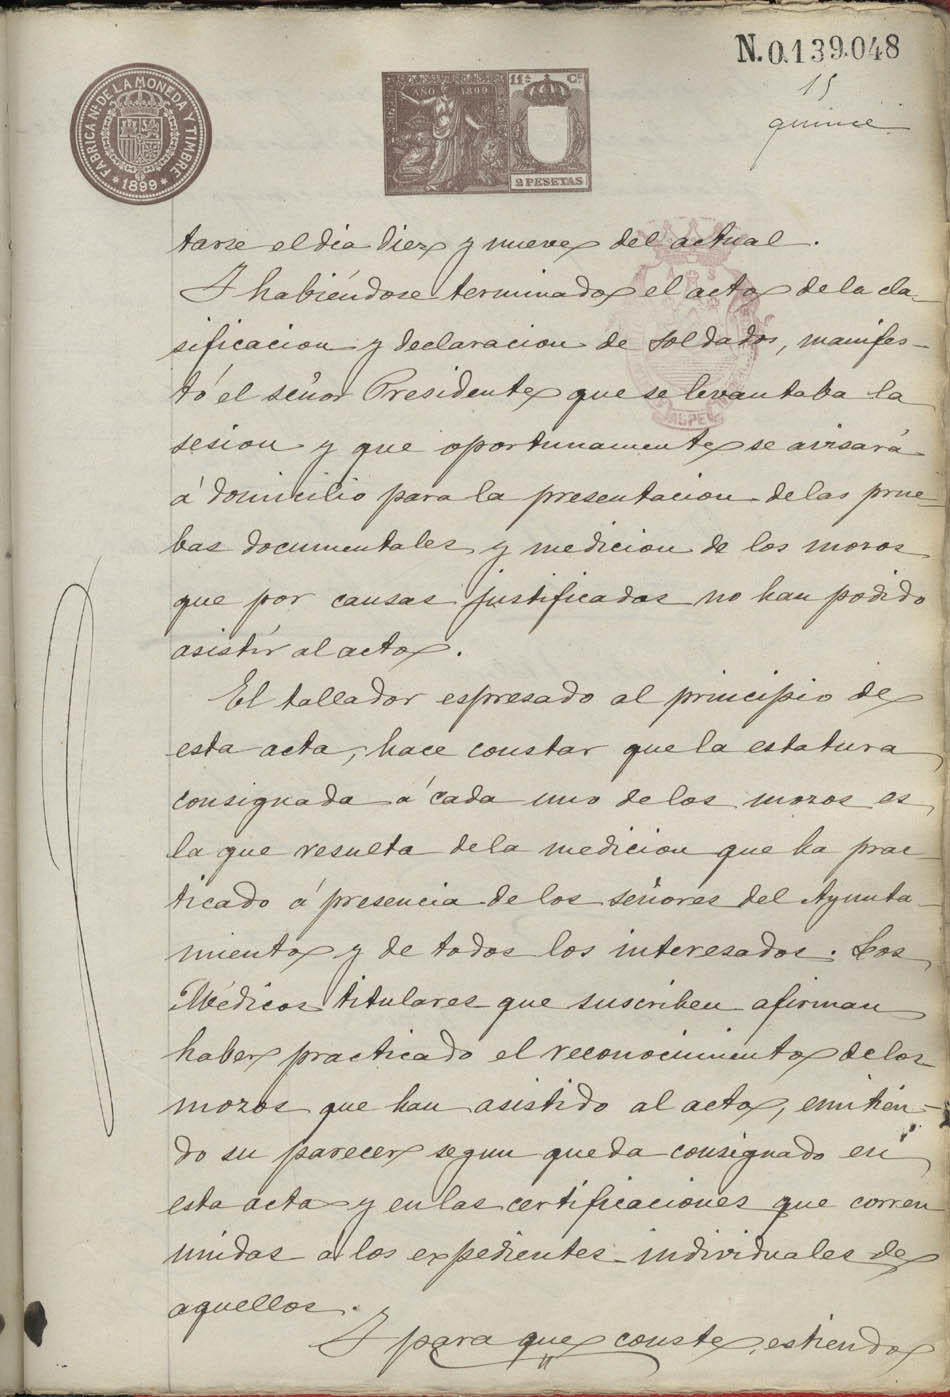 N.0.139.048
15
quince
FABRICA Nl. DE LA MONEDA Y TIMBRE
* 1899 *
AÑO 1899
11ª. Cª.
2 PESETAS
tarse el dia diez y nueve del actual.
Y habiéndose terminado el acto de la cla-
sificacion y declaracion de soldados, manifes-
tó el señor Presidente que se levantaba la
sesion y que oportunamente se avisará
á domicilio para la presentacion de las prue-
bas documentales y medicion de los mozos
que por causas justificadas no han podido
asistir al acto.
El tallador espresado al principio de
esta acta, hace constar que la estatura
consignada á cada uno de los mozos es
la que resulta de la medicion que ha prac-
ticado á presencia de los señores del Ayunta-
miento y de todos los interesados. Los
Médicos titulares que suscriben afirman
haber practicado el reconocimiento de los
mozos que han asistido al acto, emitien-
do su parecer segun queda consignado en
esta acta y en las certificaciones que corren
unidas a los expedientes individuales de
aquellos.
Y para que conste, estiendo